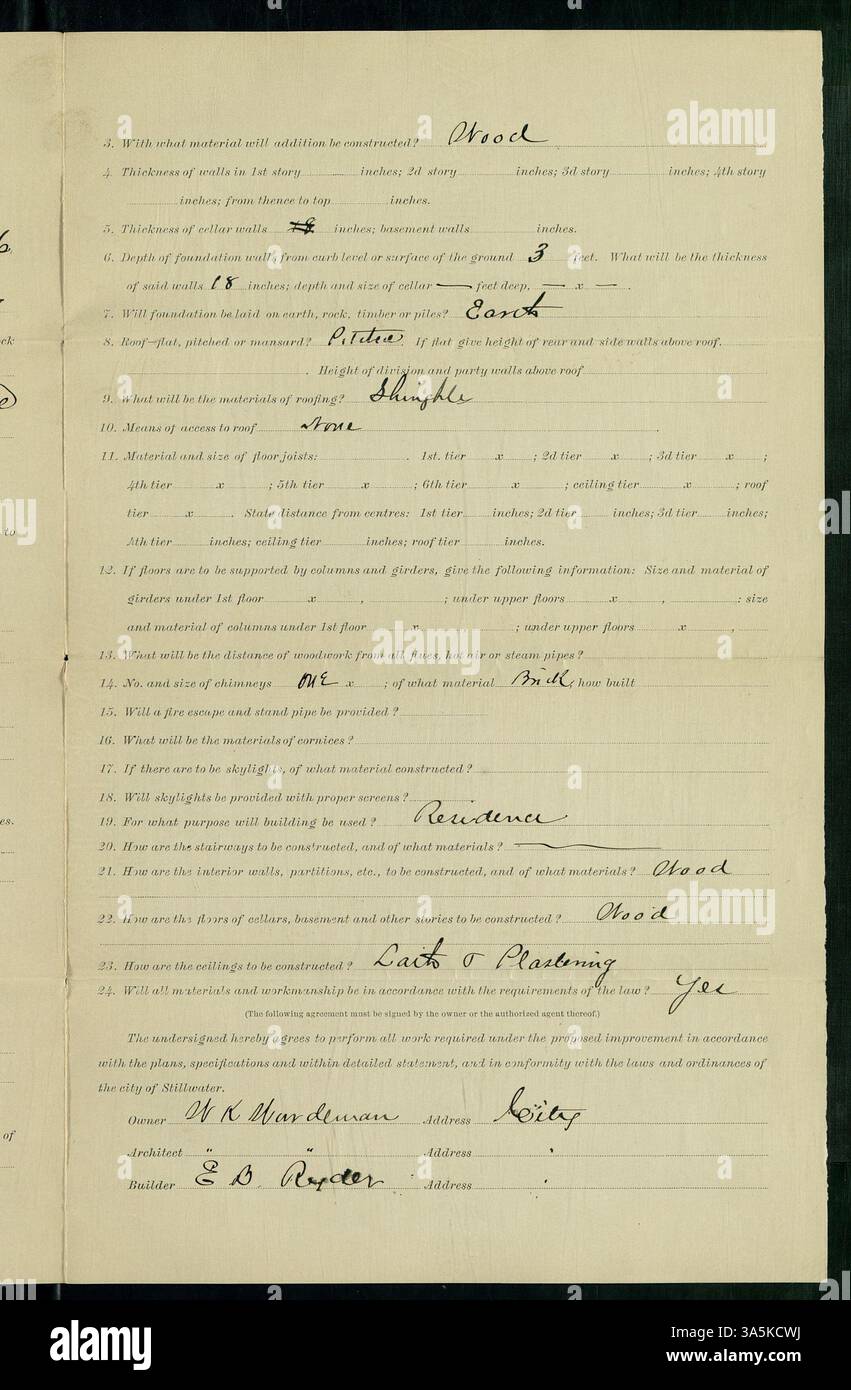 3. With what material will addition be constructed? Wood
4. Thickness of walls in 1st story inches; 2d story inches; 3d story inches; 4th story
inches; from thence to top inches.
5. Thickness of cellar walls inches; basement walls inches.
6. Depth of foundation walls, from curb level or surface of the ground 3 feet. What will be the thickness
of said walls 18 inches; depth and size of cellar — feet deep, — x — .
7. Will foundation be laid on earth, rock, timber or piles? Earth
8. Roof—flat, pitched or mansard? Pitched. If flat give height of rear and side walls above roof.
. Height of division and party walls above roof
9. What will be the materials of roofing? Shingle
10. Means of access to roof None .
11. Material and size of floor joists: . 1st. tier x ; 2d tier x ; 3d tier x ;
4th tier x ; 5th tier x ; 6th tier x ; ceiling tier x ; roof
tier x . State distance from centres: 1st tier inches; 2d tier inches; 3d tier inches;
4th tier inches; ceiling tier inches; roof tier inches.
12. If floors are to be supported by columns and girders, give the following information: Size and material of
girders under 1st floor x , ; under upper floors x , : size
and material of columns under 1st floor x ; under upper floors x ,
13. What will be the distance of woodwork from all flues, hot air or steam pipes?
14. No. and size of chimneys one x ; of what material Brick; how built
15. Will a fire escape and stand pipe be provided?
16. What will be the materials of cornices?
17. If there are to be skylights, of what material constructed?
18. Will skylights be provided with proper screens?
19. For what purpose will building be used? Residence
20. How are the stairways to be constructed, and of what materials? —
21. How are the interior walls, partitions, etc., to be constructed, and of what materials? Wood
22. How are the floors of cellars, basement and other stories to be constructed? Wood
23. How are the ceilings to be constructed? Lath & Plastering
24. Will all materials and workmanship be in accordance with the requirements of the law? Yes
(The following agreement must be signed by the owner or the authorized agent thereof.)
The undersigned hereby agrees to perform all work required under the proposed improvement in accordance
with the plans, specifications and within detailed statement, and in conformity with the laws and ordinances of
the city of Stillwater.
Owner W K Wardeman Address City
Architect " " Address "
Builder E B. Ryder Address "
ck
to
es.
of
alamy
alamy
Image ID: 3A5KCWJ
www.alamy.com